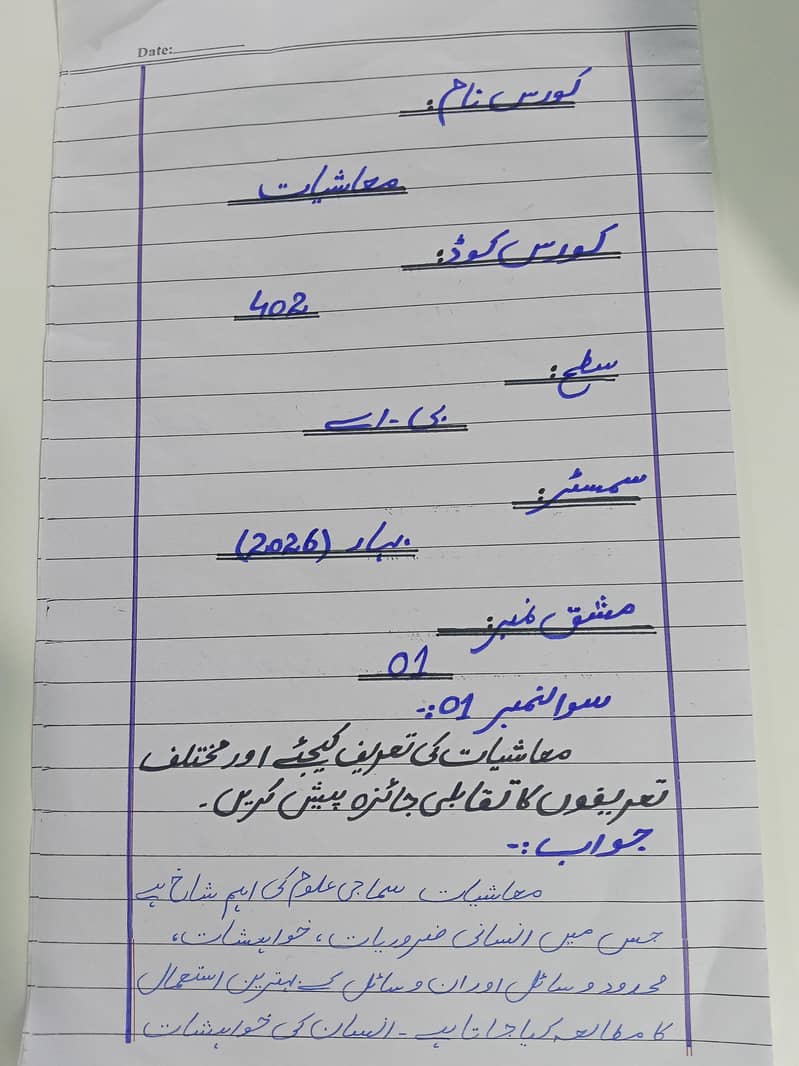 Date:
کورس نام:
معاشیات
کورس کوڈ:
402
سطح:
بی-اے
سمسٹر:
بہار (2026)
مشق نمبر:
01
سوالنمبر 01:-
معاشیات کی تعریف کیجئے اور مختلف
تعریفوں کا تقابلی جائزہ پیش کریں۔
جواب:-
معاشیات سماجی علوم کی اہم شاخ ہے
جس میں انسانی ضروریات، خواہشات،
محدود وسائل اور ان وسائل کے بہترین استعمال
کا مطالعہ کیا جاتا ہے۔ انسان کی خواہشات